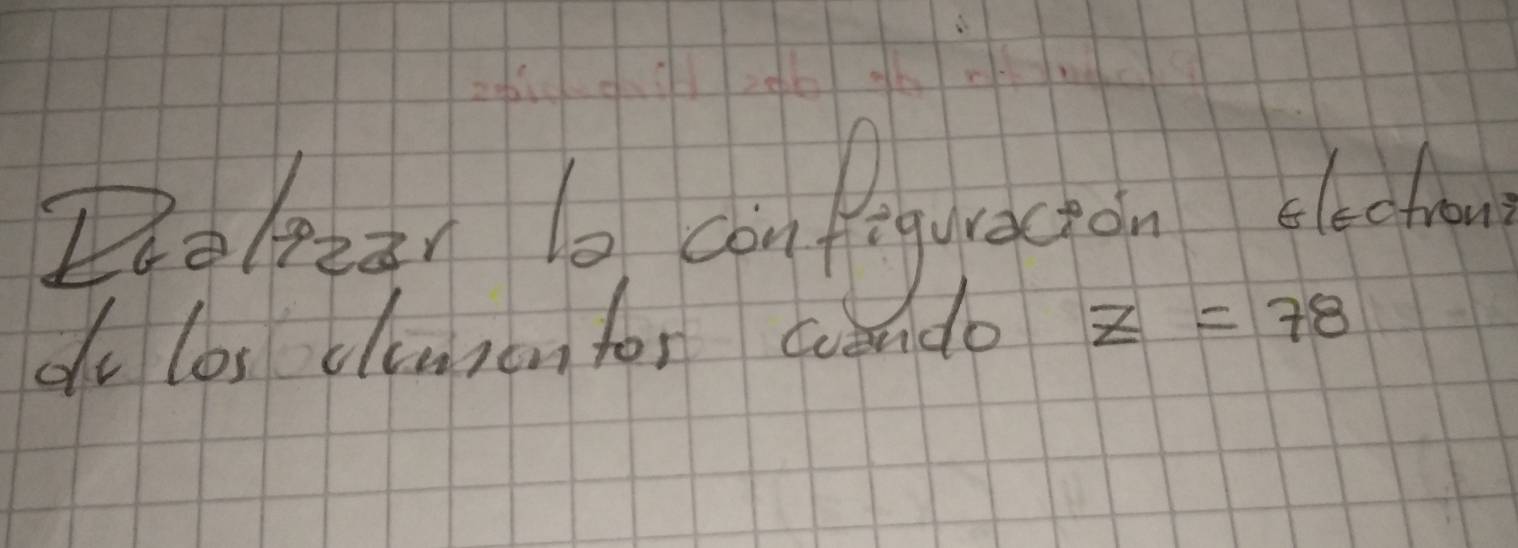 Realizar la configuración electroni
de los elementos cuando z = 78